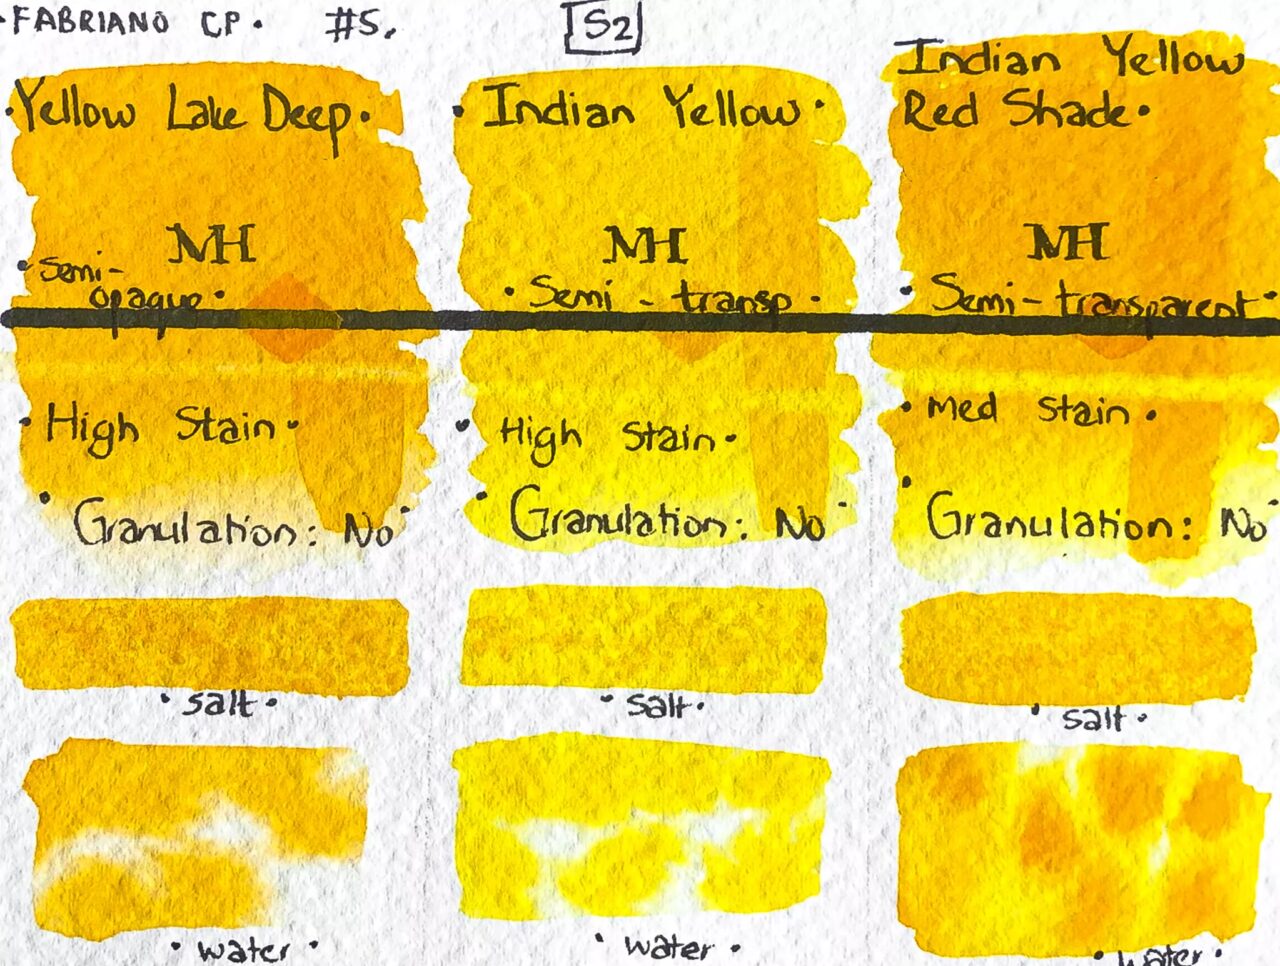 ·FABRIANO CP· #5. S2
·Yellow Lake Deep·
MH
·Semi-
opaque·
·High Stain·
·Granulation: No·
·salt·
·water·
·Indian Yellow·
MH
·Semi-transp·
·High Stain·
·Granulation: No·
·salt·
·water·
Indian Yellow
Red Shade·
MH
·Semi-transparent·
·Med Stain·
·Granulation: No·
·salt·
·water·